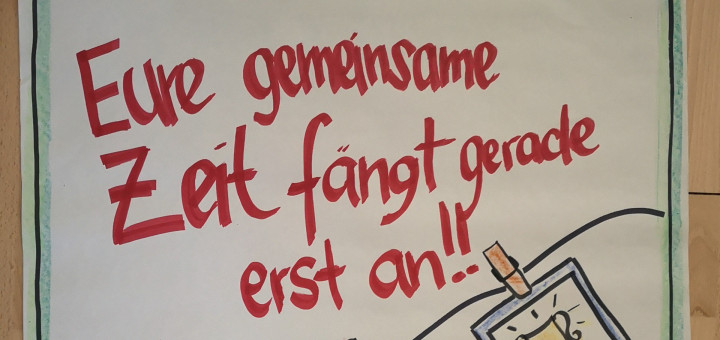 Eure gemeinsame
Zeit fängt gerade
erst an!!